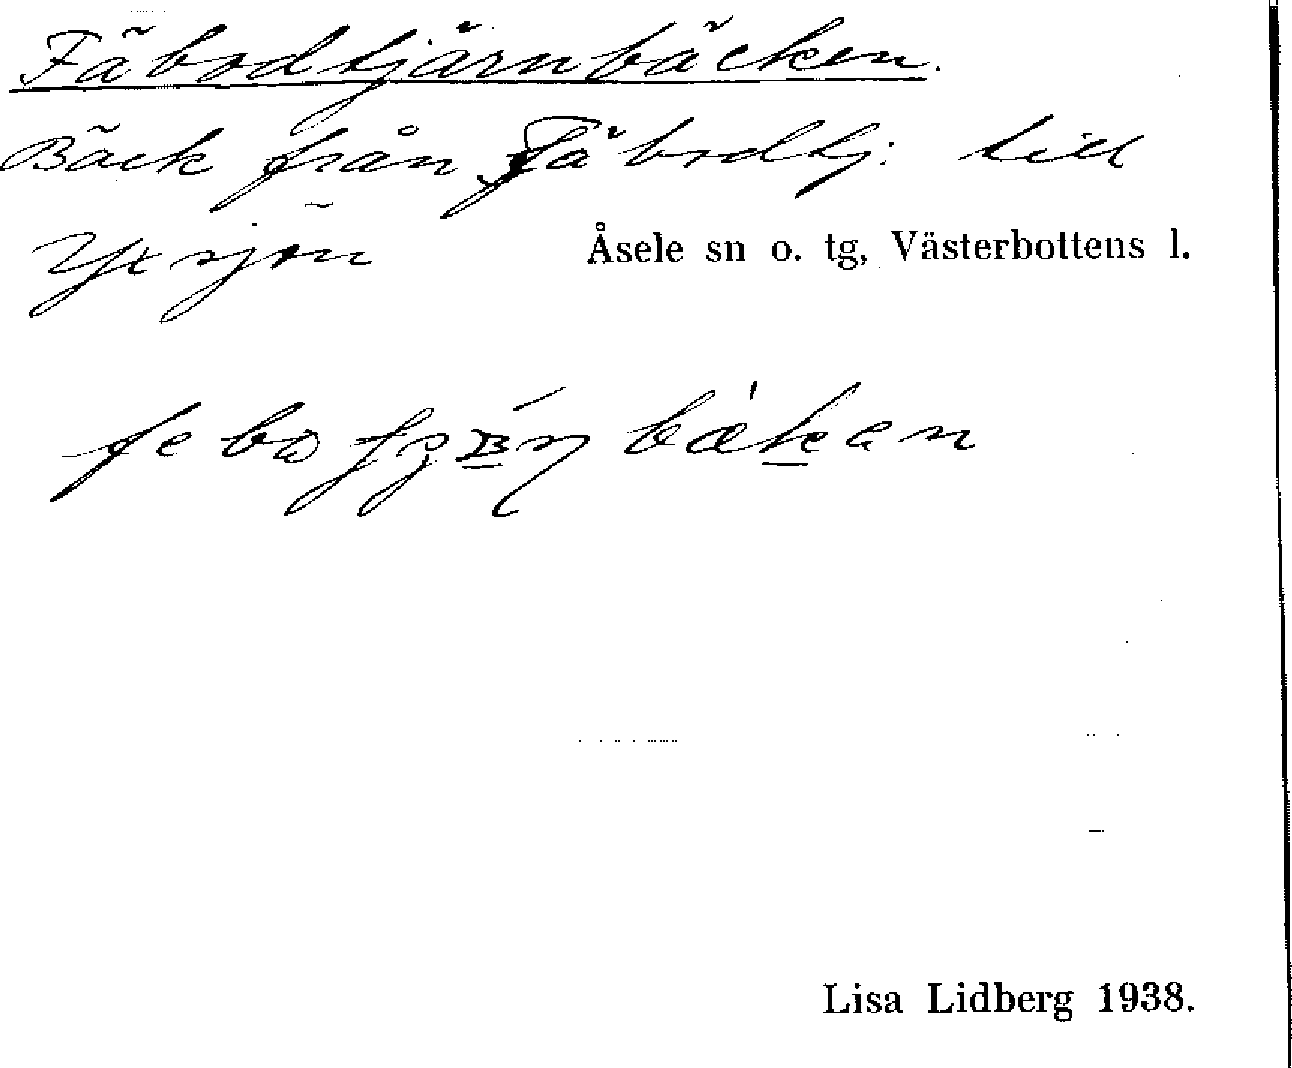 Fäbodtjärnbäcken.
Bäck från Fäbodtj: till
Yxsjön
Åsele sn o. tg, Västerbottens l.
Lisa Lidberg 1938.